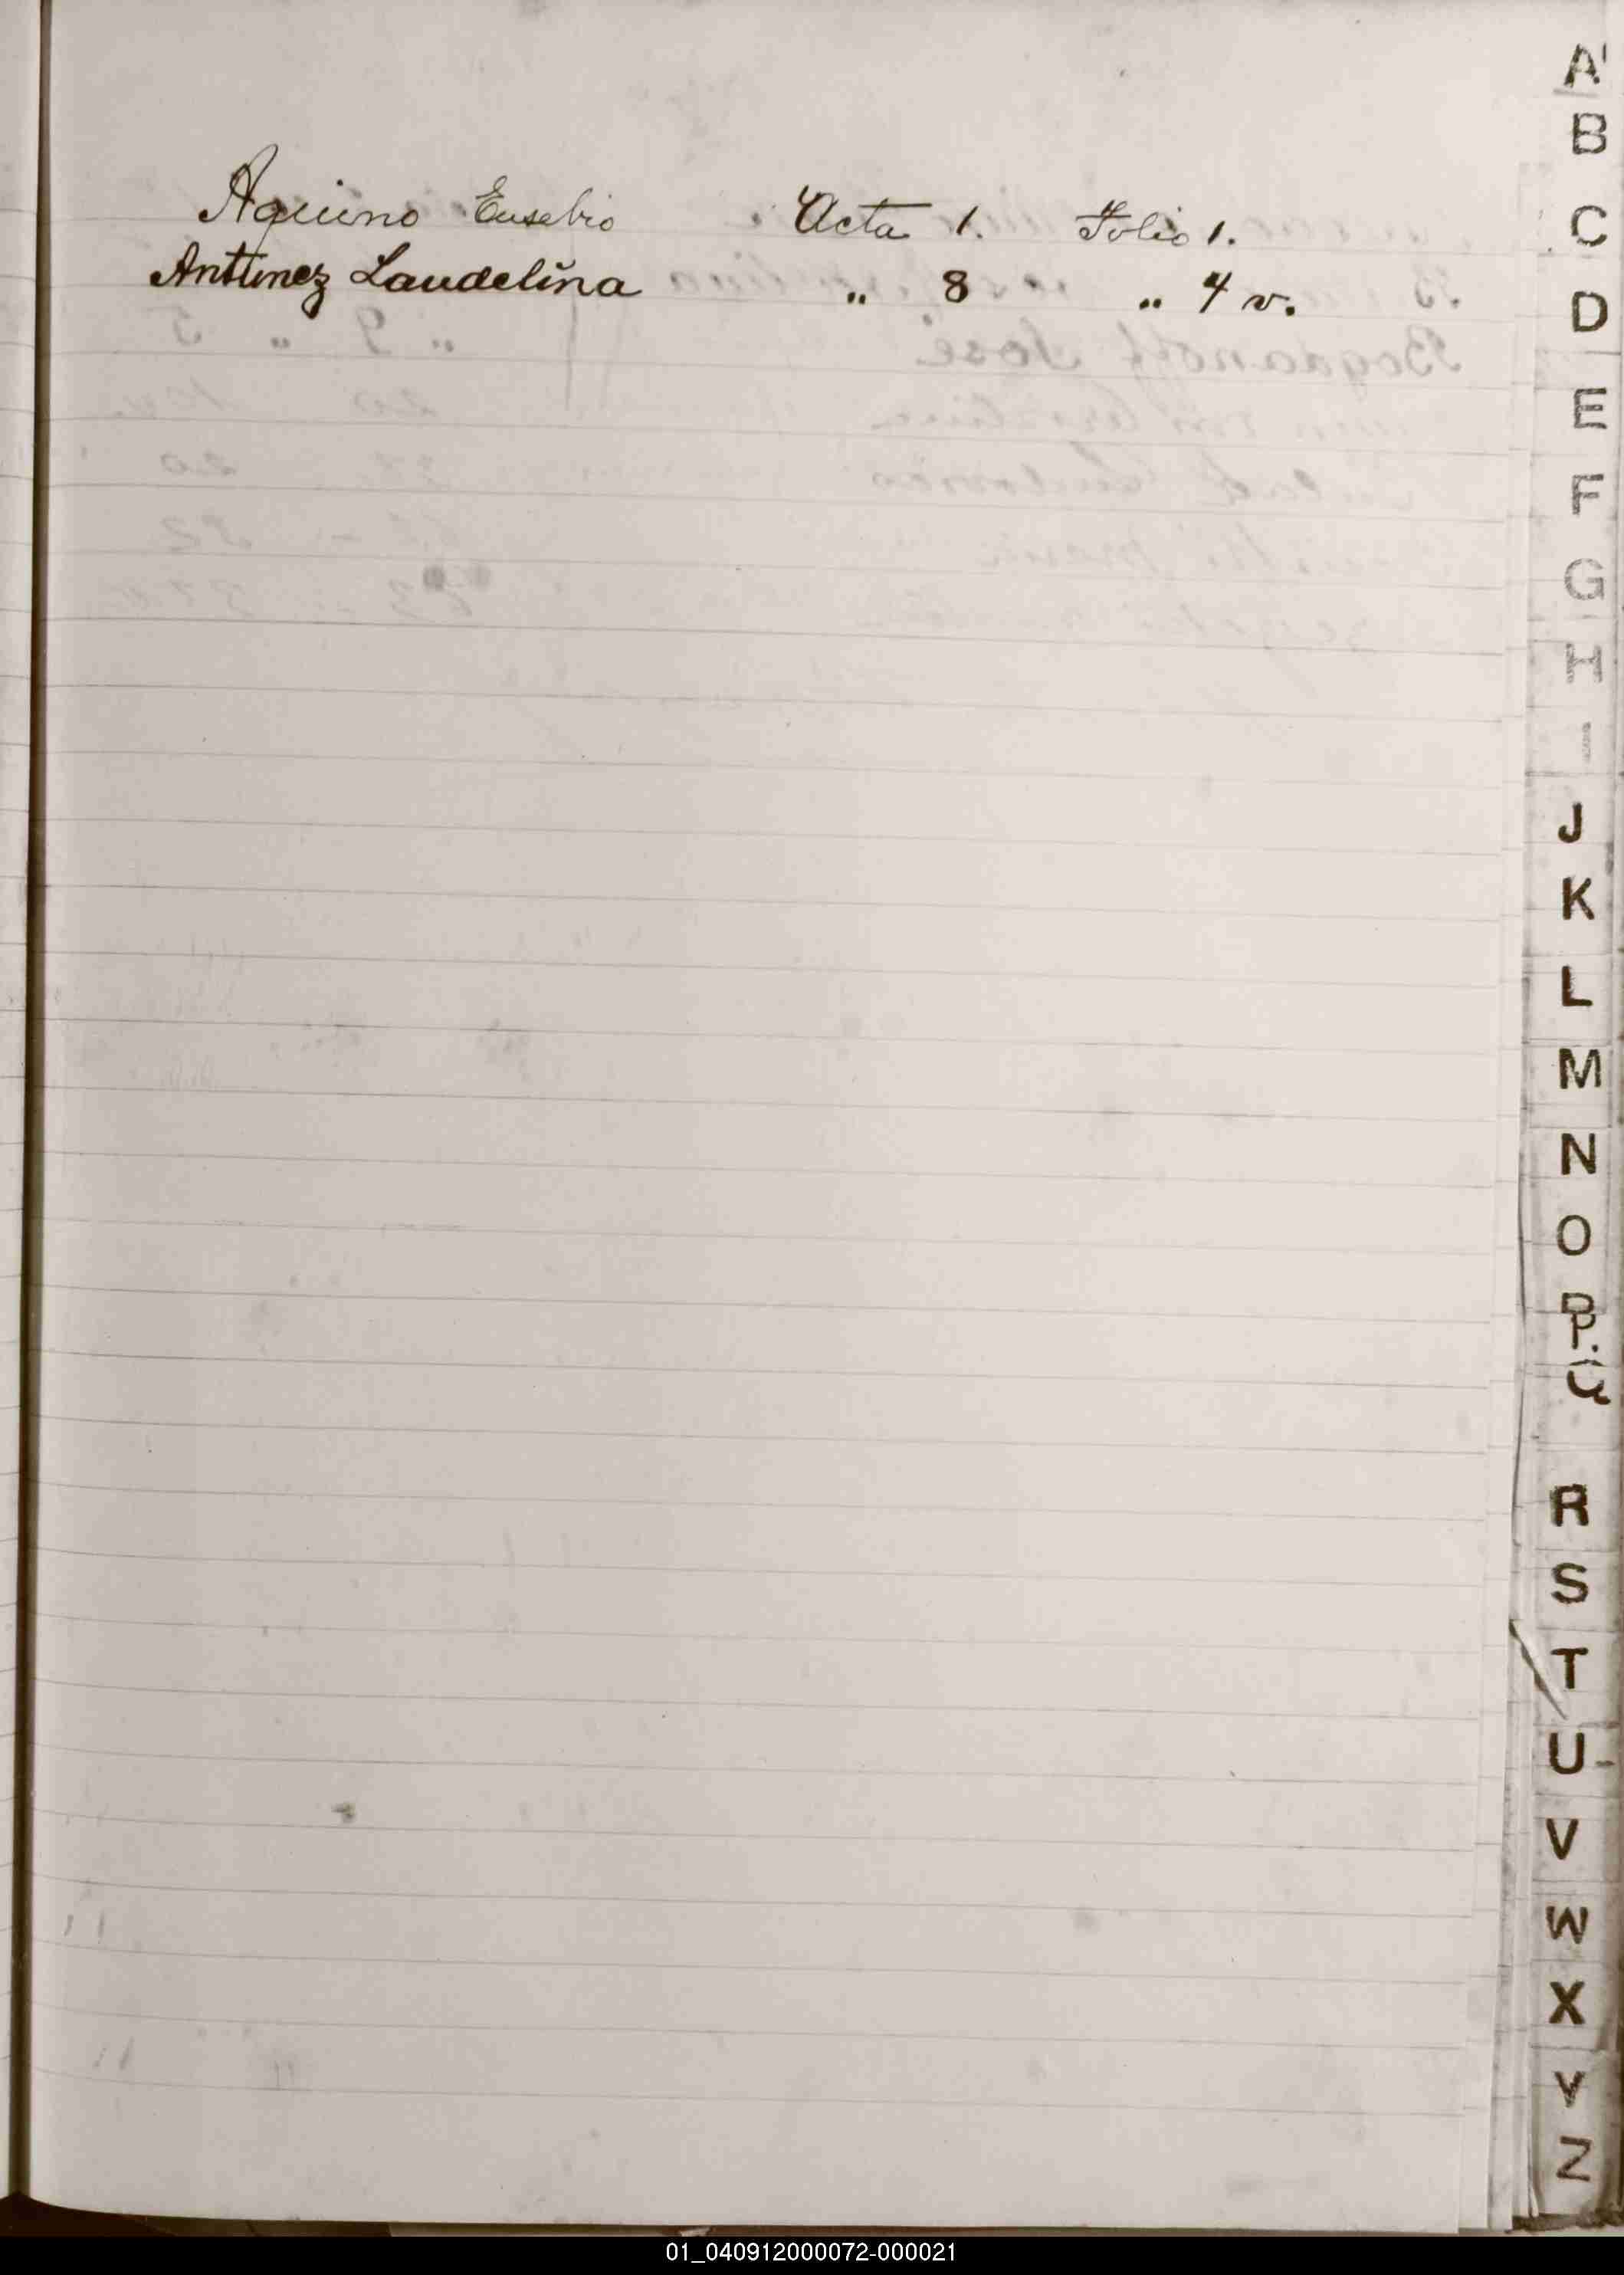 Aquino Eusebio Acta 1. Folio 1.
Antunez Laudelina " 8 " 4 v.
Bogdanoff José " 9 " 5
A
B
C
D
E
F
G
H
I
J
K
L
M
N
O
P
Q
R
S
T
U
V
W
X
Y
Z
01_040912000072-000021